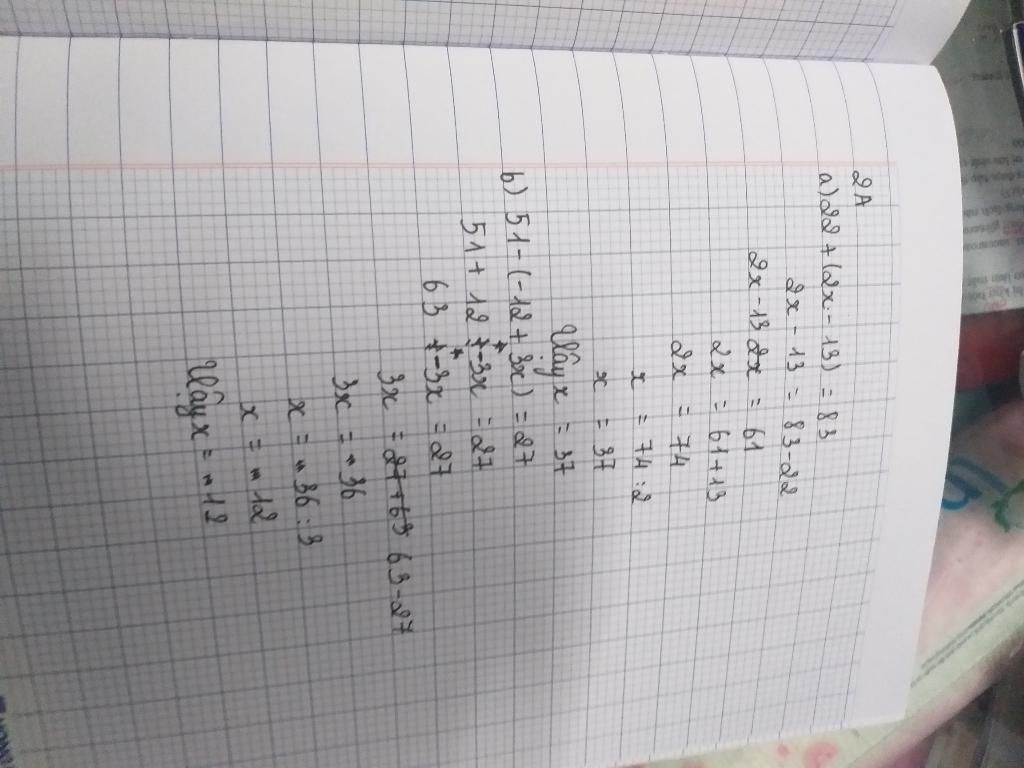 2A
a) 22 + (2x - 13) = 83
2x - 13 = 83 - 22
2x - 13 2x = 61
2x = 61 + 13
2x = 74
x = 74 : 2
x = 37
Vậy x = 37
b) 51 - (-12 + 3x) = 27
51 + 12 - 3x = 27
63 - 3x = 27
3x = 27 + 63 63 - 27
3x = 36
x = 36 : 3
x = 12
Vậy x = 12